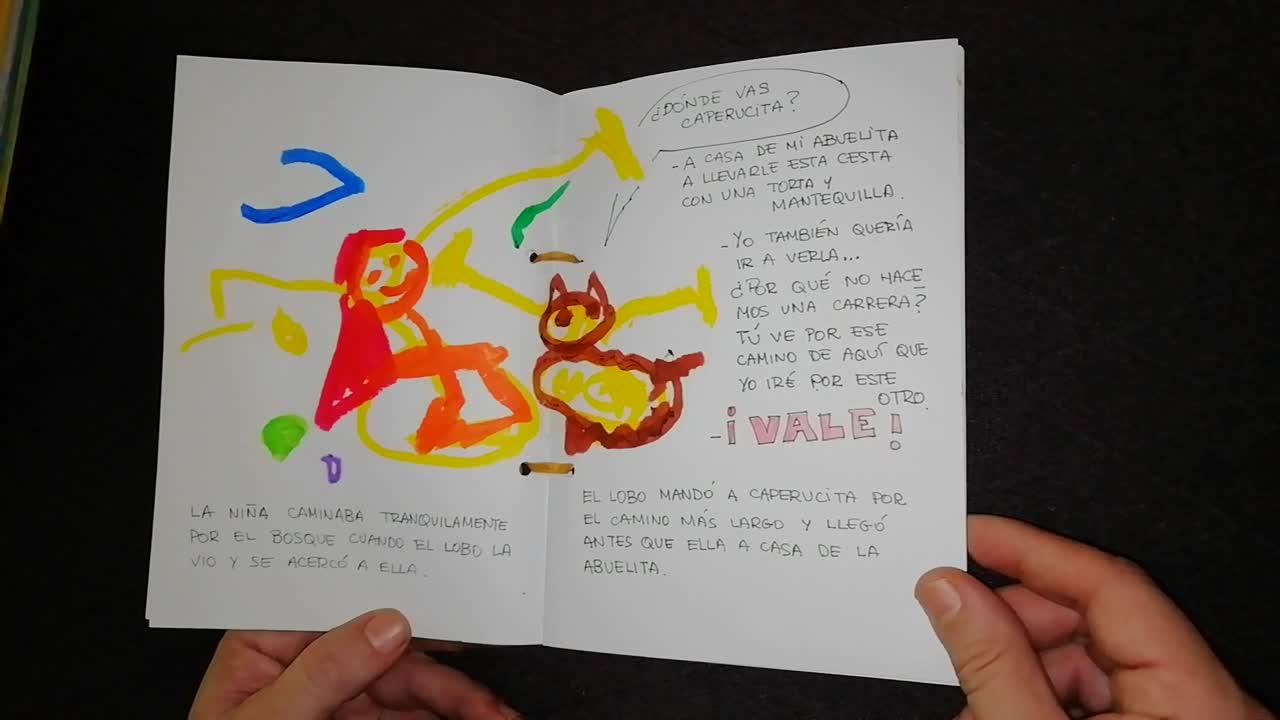 LA NIÑA CAMINABA TRANQUILAMENTE
POR EL BOSQUE CUANDO EL LOBO LA
VIO Y SE ACERCÓ A ELLA.
¿DÓNDE VAS
CAPERUCITA?
- A CASA DE MI ABUELITA
A LLEVARLE ESTA CESTA
CON UNA TORTA Y
MANTEQUILLA.
- YO TAMBIÉN QUERÍA
IR A VERLA...
¿POR QUÉ NO HACE
MOS UNA CARRERA?
TÚ VE POR ESE
CAMINO DE AQUÍ QUE
YO IRÉ POR ESTE
OTRO.
- ¡VALE!
EL LOBO MANDÓ A CAPERUCITA POR
EL CAMINO MÁS LARGO Y LLEGÓ
ANTES QUE ELLA A CASA DE LA
ABUELITA.